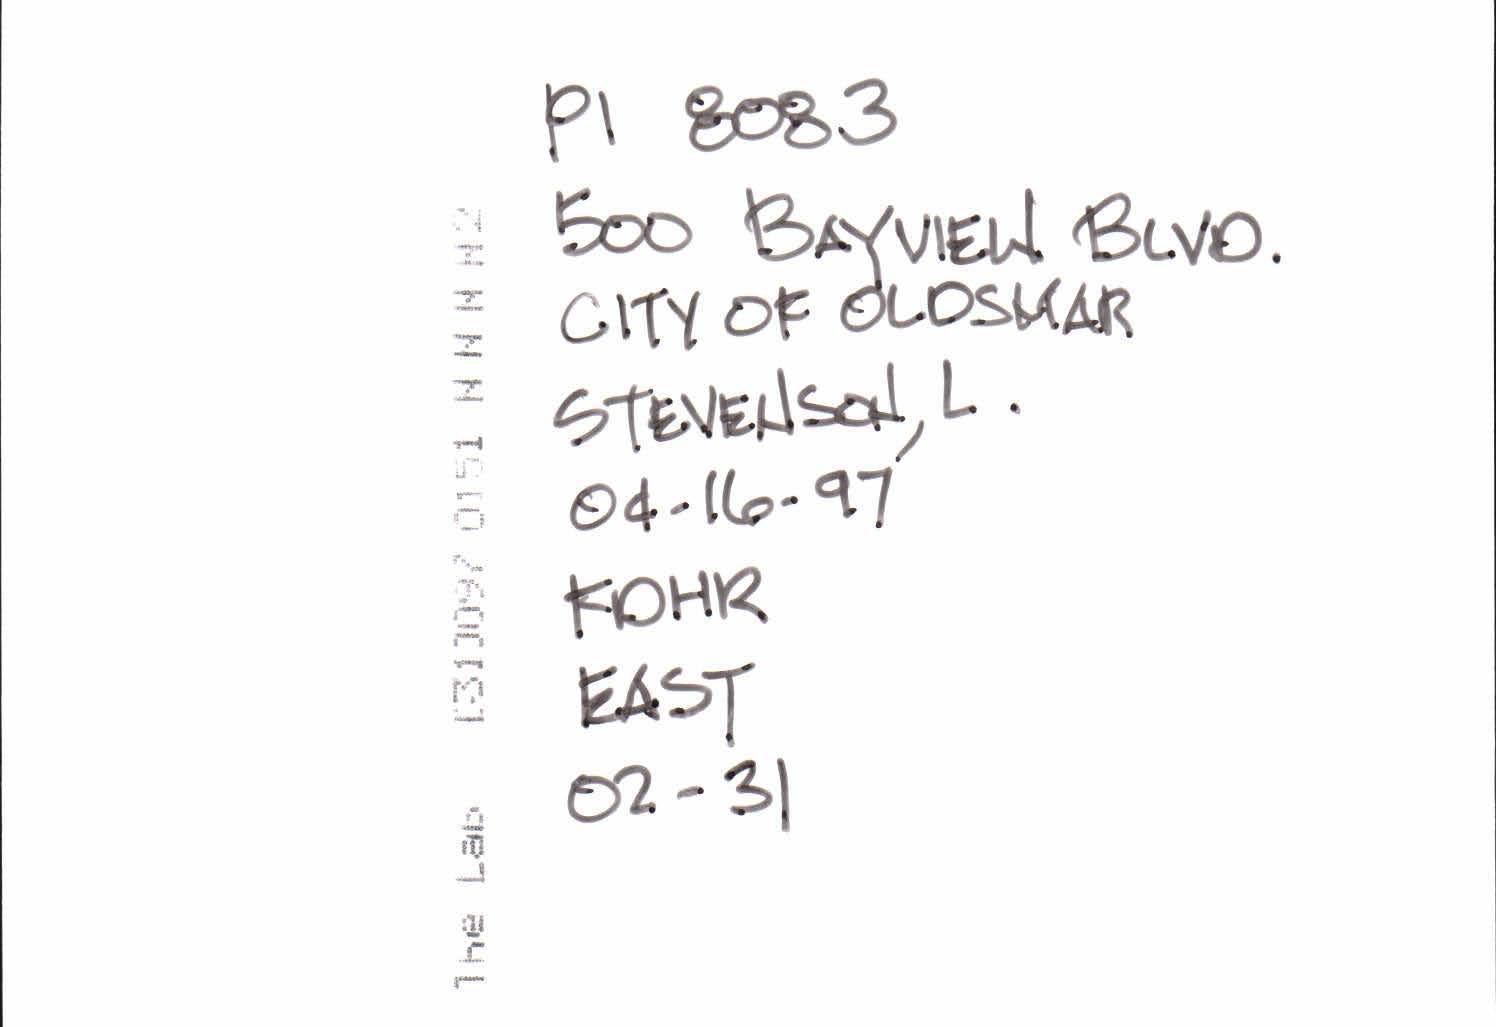 PI 8083
500 BAYVIEW BLVD.
CITY OF OLDSMAR
STEVENSON, L.
04-16-97
KOHR
EAST
02-31
The Lab